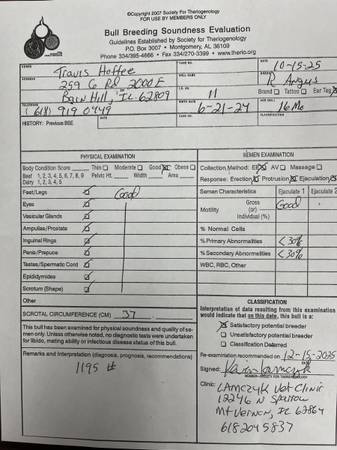 ©Copyright 2007 Society For Theriogenology
FOR USE BY MEMBERS ONLY
Bull Breeding Soundness Evaluation
Guidelines Established by Society for Theriogenology
P.O. Box 3007 • Montgomery, AL 36109
Phone 334/395-4666 • Fax 334/270-3399 • www.therio.org
OWNER Travis Hoffee
CASE NO. DATE 10-15-25
ADDRESS 259 C Rd 2000 E
BULL NAME BREED R Angus
Barn Hill, IL 62809
I.D. NO. 11 Brand Tattoo Ear Tag
TELEPHONE (618) 919 0449
BIRTH DATE 6-21-24 AGE (MOS) 16 Mo
HISTORY: Previous BSE CLASSIFICATION
PHYSICAL EXAMINATION
Body Condition Score Thin Moderate Good Obese
Beef 1, 2, 3, 4, 5, 6, 7, 8, 9 Pelvic Ht. Width Area
Dairy 1, 2, 3, 4, 5
Feet/Legs Good
Eyes
Vesicular Glands
Ampullae/Prostate
Inguinal Rings
Penis/Prepuce
Testes/Spermatic Cord
Epididymides
Scrotum (Shape)
Other
SCROTAL CIRCUMFERENCE (CM) 37
This bull has been examined for physical soundness and quality of semen only. Unless otherwise noted, no diagnostic tests were undertaken for libido, mating ability or infectious disease status of this bull.
Remarks and Interpretation (diagnosis, prognosis, recommendations)
1195 #
SEMEN EXAMINATION
Collection Method: EE AV Massage
Response: Erection Protrusion Ejaculation
Semen Characteristics Ejaculate 1 Ejaculate 2
Motility Gross (or) Individual (%) Good
% Normal Cells
% Primary Abnormalities <30%
% Secondary Abnormalities <30%
WBC, RBC, Other
CLASSIFICATION
Interpretation of data resulting from this examination
would indicate that on this date, this bull is a:
Satisfactory potential breeder
Unsatisfactory potential breeder
Classification Deferred
Re-examination recommended on 12-15-2025
Signed:
MEMBER - SOCIETY FOR THERIOGENOLOGY
Clinic: LAMCZYK Vet Clinic
12246 N Sparrow
Mt Vernon, IL 62864
6182045837